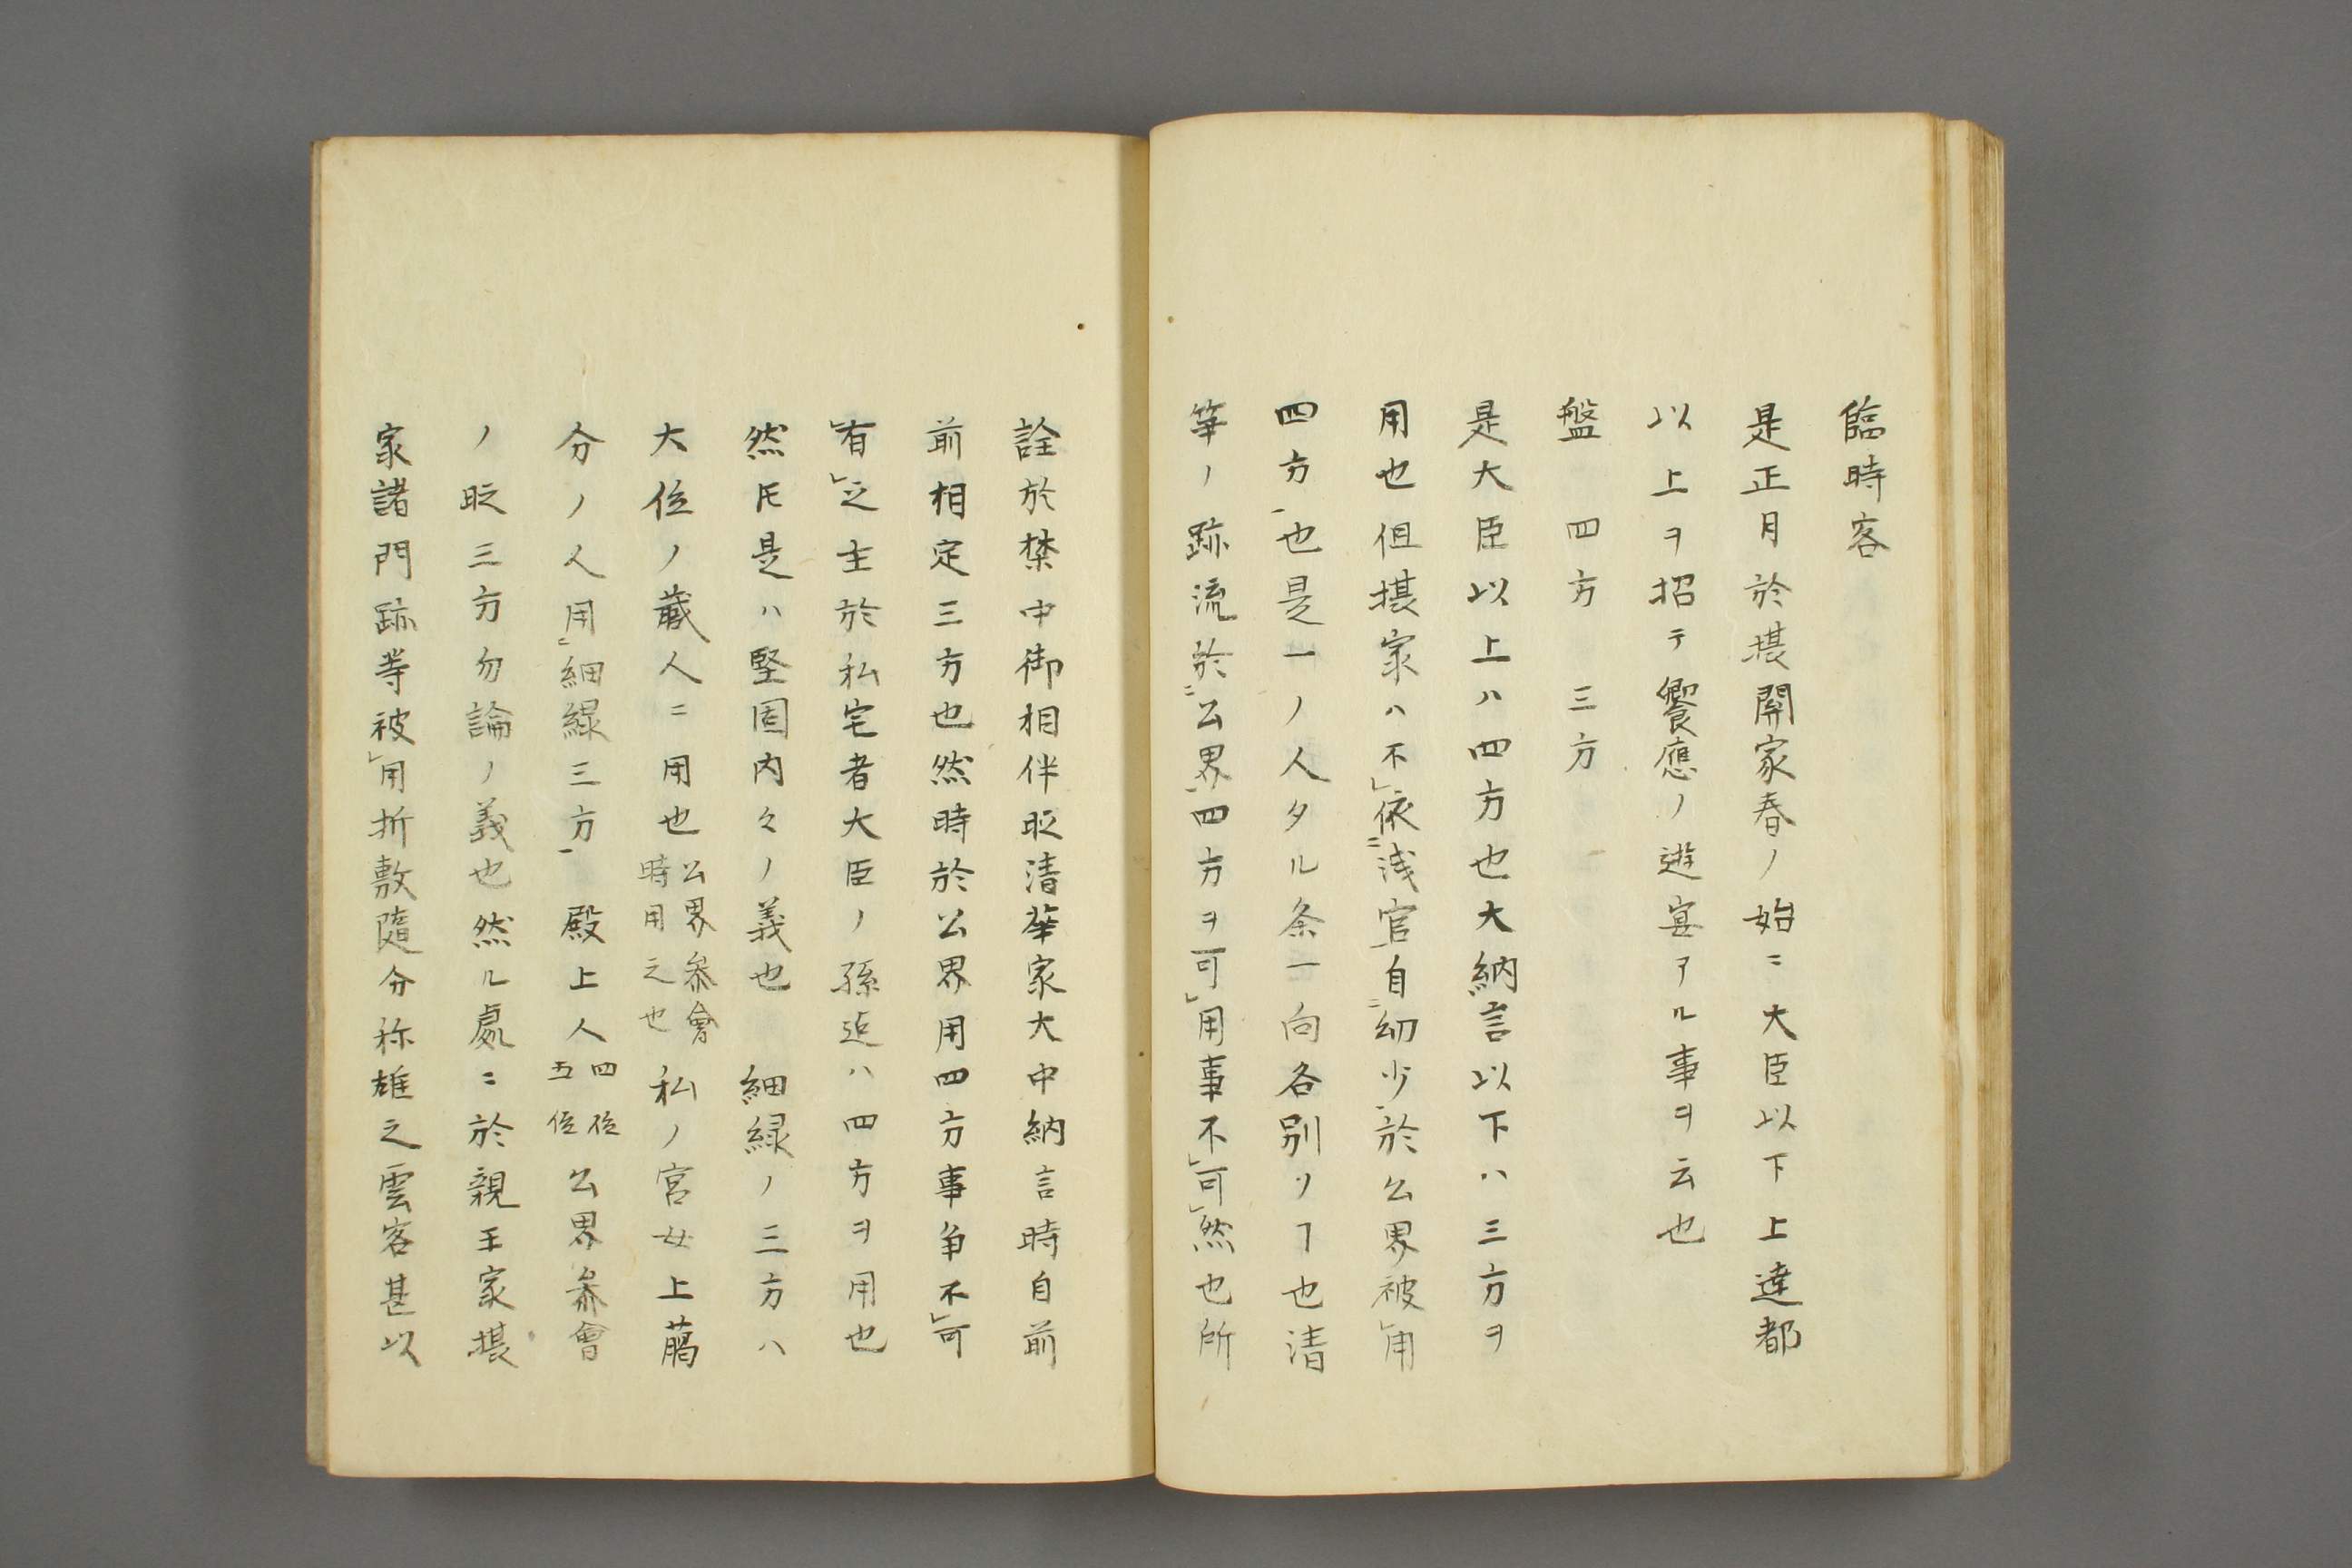 臨時客
是正月於摂関家春ノ始ニ大臣以下上達都
以上ヲ招テ饗應ノ遊宴アル事ヲ云也
盤　四方　三方
是大臣以上ハ四方也大納言以下ハ三方ヲ
用也但摂家ハ不レ依ニ浅官自ニ幼少一於公界被レ用
四方一也是一ノ人タル条一向各別ノヿ也清
筆ノ跡流於ニ公界一四方ヲ可レ用事不レ可レ然也所
詮於禁中御相伴时清華家大中納言時自前
前相定三方也然時於公界用四方事争不レ可
レ有レ之主於私宅者大臣ノ孫迠ハ四方ヲ用也
然𪜈是ハ堅固内々ノ義也　細緑ノ三方ハ
大位ノ蔵人ニ用也公界参會時用之也私ノ官女上﨟
分ノ人用ニ細縁三方一　殿上人四位五位公界参會
ノ时三方勿論ノ義也然ル處ニ於親王家摂
家諸門跡等被レ用折敷随分称雄之雲客甚以